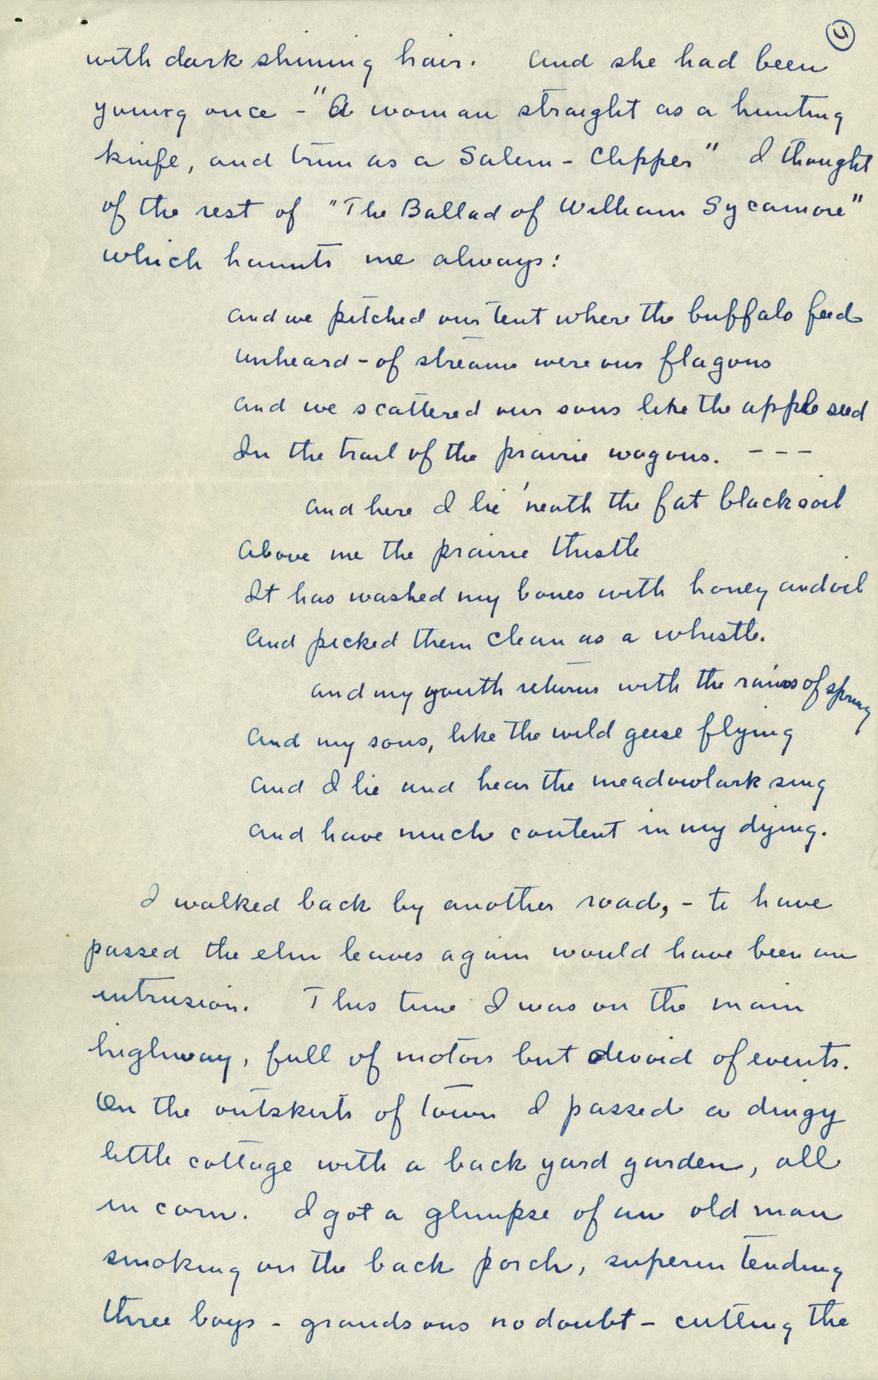 5
with dark shining hair. And she had been
young once - "A woman straight as a hunting
knife, and trim as a Salem - Clipper" I thought
of the rest of "The Ballad of William Sycamore"
which haunts me always:
And we pitched our tent where the buffalo feed
Unheard-of streams were our flagons
And we scattered our sons like the apple seed
In the trail of the prairie wagons. ---
And here I lie 'neath the fat black soil
Above me the prairie thistle
It has washed my bones with honey and oil
And picked them clean as a whistle.
And my youth returns with the rains of spring
And my sons, like the wild geese flying
And I lie and hear the meadowlark sing
And have much content in my dying.
I walked back by another road, - to have
passed the elm leaves again would have been an
intrusion. This time I was on the main
highway, full of motors but devoid of events.
On the outskirts of town I passed a dingy
little cottage with a back yard garden, all
in corn. I got a glimpse of an old man
smoking on the back porch, superintending
three boys - grandsons no doubt - cutting the